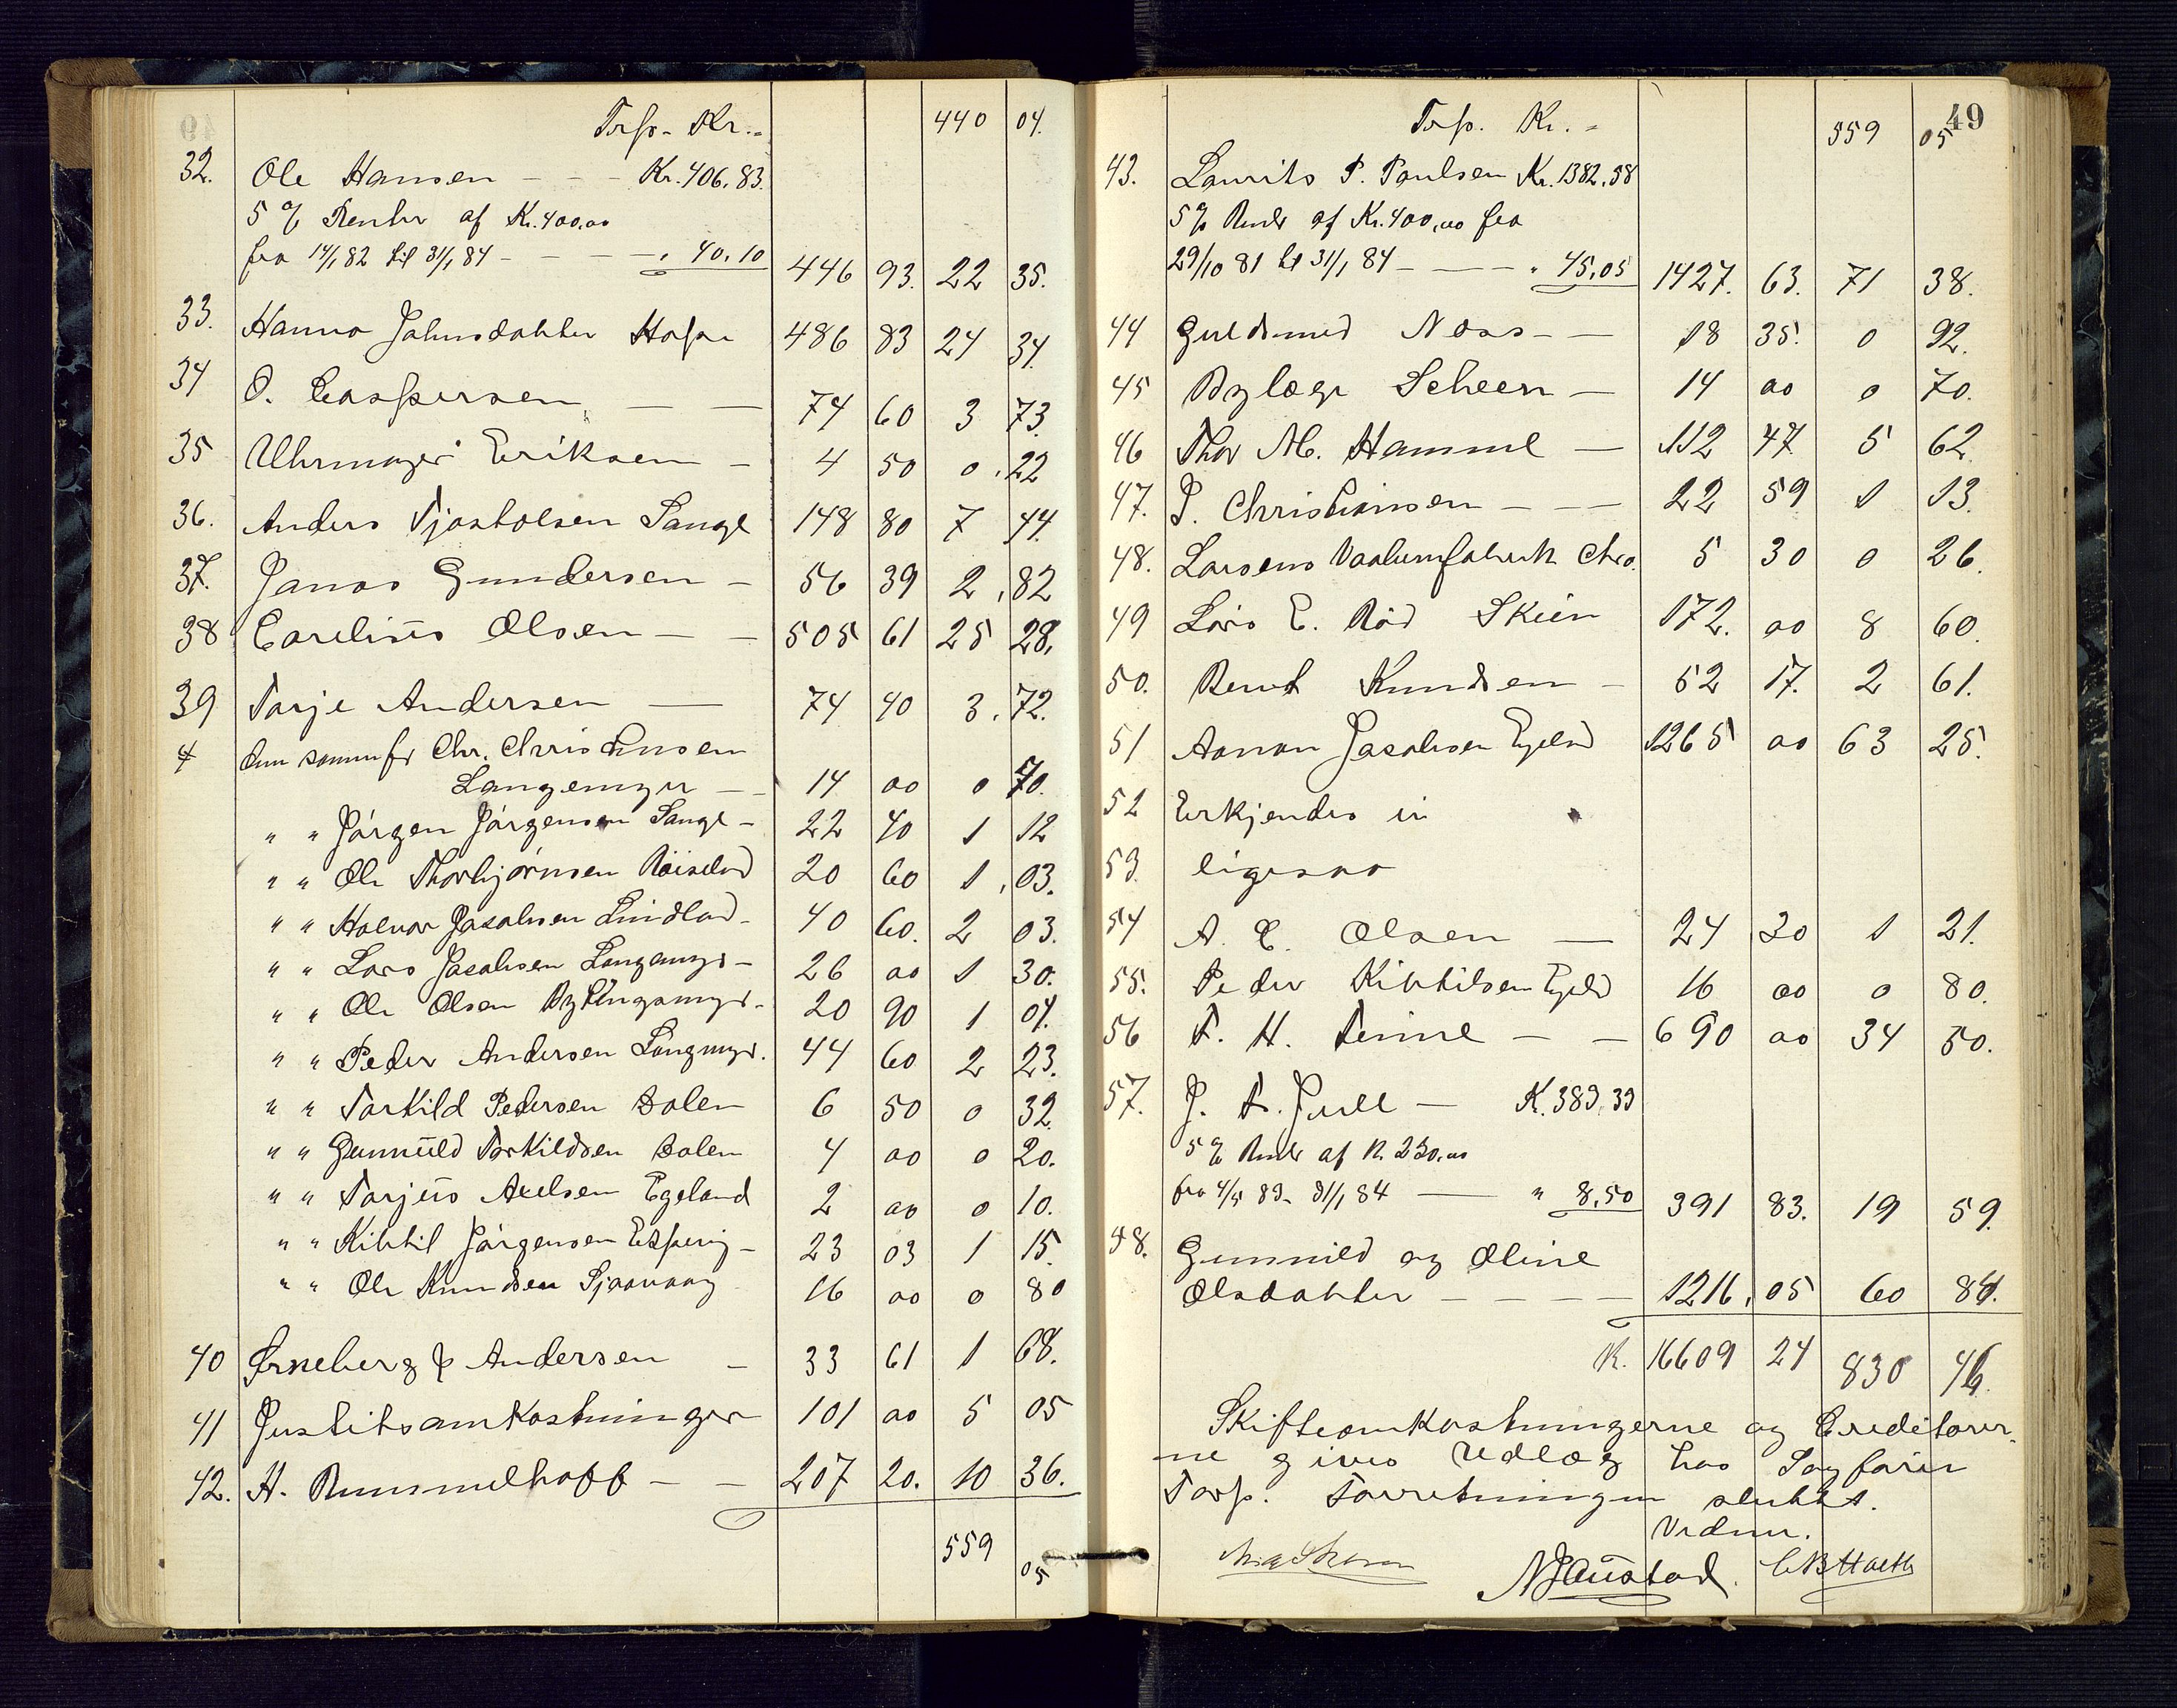 Trsp. Kr. - 440 04.
32. Ole Hansen - - - Kr. 406,83.
5 % Renter af Kr. 400,00
fra 14/1 82 til 31/1 84 - - - - „ 40,10 446 93. 22 35.
33. Hanna Johnsdatter Hope 486 83 24 34.
34 O. Caspersen - - 74 60 3 73.
35 Uhrmager Eriksen - 4 50 0. 22
36. Anders Tjostolsen Lauge 148 80 7 44.
37. Jonas Gundersen - 56 39 2. 82
38 Carelius Olsen - - 505 61 25 28.
39 Tarje Andersen - 74 40 3. 72.
4 den sammes Chr. Christensen
Langemyr - - 14 00 0 70.
" " Jörgen Jörgensen Lauge - 22 40 1 12
" " Ole Thorbjörnsen Röiseland 20 60 1. 03.
" " Halvor Jacobsen Lindland - 40 60. 2 03.
" " Lars Jacobsen Langemyr - 26 00 1 30.
" " Ole Olsen Bytingsmyr - 20 90 1 04.
" " Peder Andersen Langmyr. 44 60 2 23.
" " Torkild Pedersen Dalen 6 50 0 32.
" " Gunnuld Torkildsen Dalen 4 00 0 20.
" " Tarjus Axelsen Egeland 2 00 0 10.
" " Kittil Jörgensen Espering - 23 03 1 15.
" " Ole Knudsen 16 00 0 80
40 Ørneberg & Andersen - 33 61 1 68.
41 Justitsomkostninger 101 00 5 05
42. H. Rummelhoff - - 207 20. 10 36.
559 05
49
Trsp. Kr. - 559 05
43. Laurits P. Paulsen Kr. 1382,58
5 % Rente af Kr. 400,00 fra
29/10 81 til 31/1 84 - - - „ 45,05 1427. 63. 71 38.
44 Guldsmed Næss - - 18 35. 0 92.
45 Bylæge Scheen - 14 00 0 70.
46 Thor M. Hammel - 112 47 5 62
47. P. Christiansen - - - 22 59 1 13.
48. Larsens Vaabenfabrik Chra. 5 30 0 26.
49 Lars E. Röd Skien 172. 00 8 60.
50. Bernt Knudsen - 52 17. 2 61.
51 Aanon Jacobsen Egeland 1265 00 63 25.
52 Erkjendes ei
53. ligesaa
54 A. C. Olsen - 24 30 1 21.
55. Peder Kittilsen Egeland 16 00 0 80.
56 T. H. Tenne - - 690 00 34 50.
57. J. A. Juell - K. 383,33
5 % Rente af K. 230,00
fra 4/5 83 - 31/1 84 - " 8,50 391 83. 19 59.
58. Gunnild og Oline
Olsdatter - - - - 1216. 05 60 80.
K. 16609 24 830 46.
Skifteomkostningerne og Creditorer-
ne gives Udlæg hos Sagförer
Torp. Forretningen sluttet.
Vidner.
NJaustad.